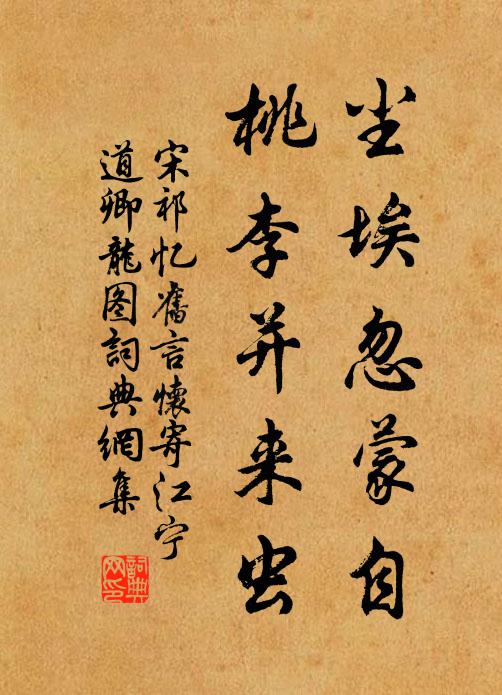 尘埃忽蒙自
桃李并来虫
宋祁忆旧言怀寄江宁
道卿龙图词典网集
词典网印